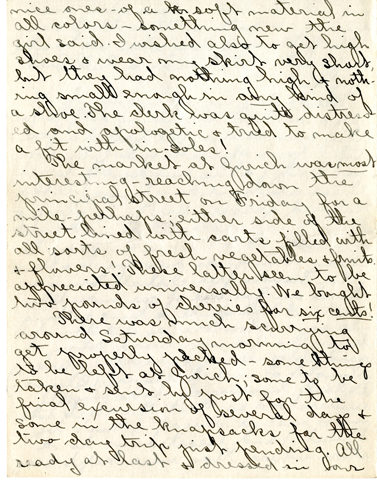 nice ones - of a soft material in
all colors - something new the
girl said. I wished also to get high
shoes & wear my skirt very short
but they had nothing high & noth-
ing small enough in any kind of
a shoe. The clerk was quite distress-
ed and apologetic & tried to make
a fit with in-soles!
The market at Zurich was most
interesting - reaching down the
principal street on Friday for a
mile perhaps, either side of the
street lined with carts filled with
all sorts of fresh vegetables & fruits
& flowers. These latter seem to be
appreciated universally. We bought
two pounds of cherries for six cents!
There was much scurrying
around Saturday morning to
get properly packed - some things
to be left at Zurich; some to be
taken & sent by post for the
final excursion of several days &
some in the knapsacks for the
two day trip just pending. All
ready at last & dressed in our